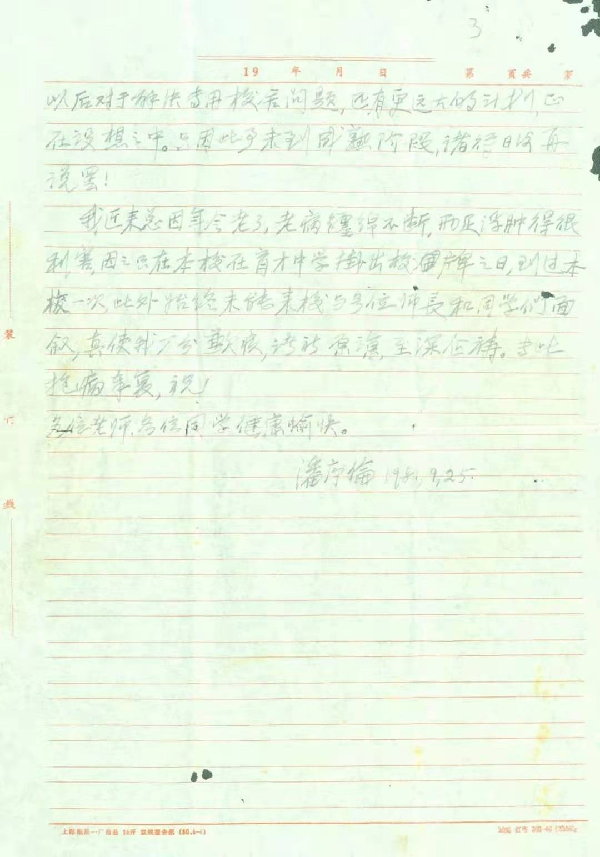 3
19 年 月 日 第 页共 页
以后对于解决专用校舍问题，还有更远大的计划，正
在设想之中。只因此事未到成熟阶段，请容日后再
说罢！
我近来总因年令老了，老病缠绵不断，而且浮肿得很
利害，因之只在本校在育才中学掛出校牌之日，到过本
校一次，此外始终未能来校与各位师長和同学们面
叙，真使我万分歉恨，请予原谅，至深企祷。专此
抱病奉复，祝！
各位老师、各位同学健康愉快。
潘序倫 1981.9.25.
装
订
线